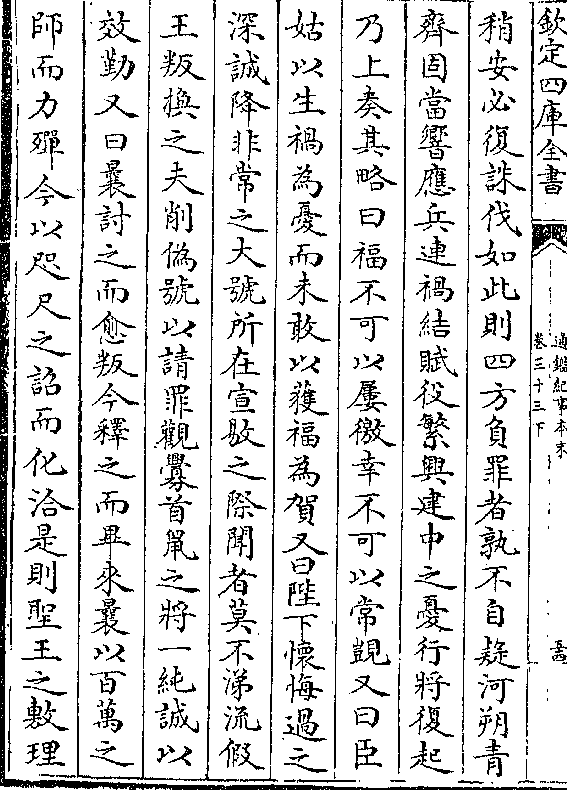 欽定四庫全書
通鑑紀事本末
卷三十三下
稍安必復誅伐如此則四方負罪者孰不自疑河朔青
齊固當響應兵連禍結賦役繁興建中之憂行將復起
乃上奏其略曰福不可以屢徼幸不可以常覬又曰臣
姑以生禍為憂而未敢以獲福為賀又曰陛下懷悔過之
深誠降非常之大號所在宣敭之際聞者莫不涕流假
王叛換之夫削偽號以請罪觀釁首鼠之將一純誠以
效勤又曰曩討之而愈叛今釋之而畢來曩以百萬之
師而力殫今以咫尺之詔而化洽是則聖王之敷理